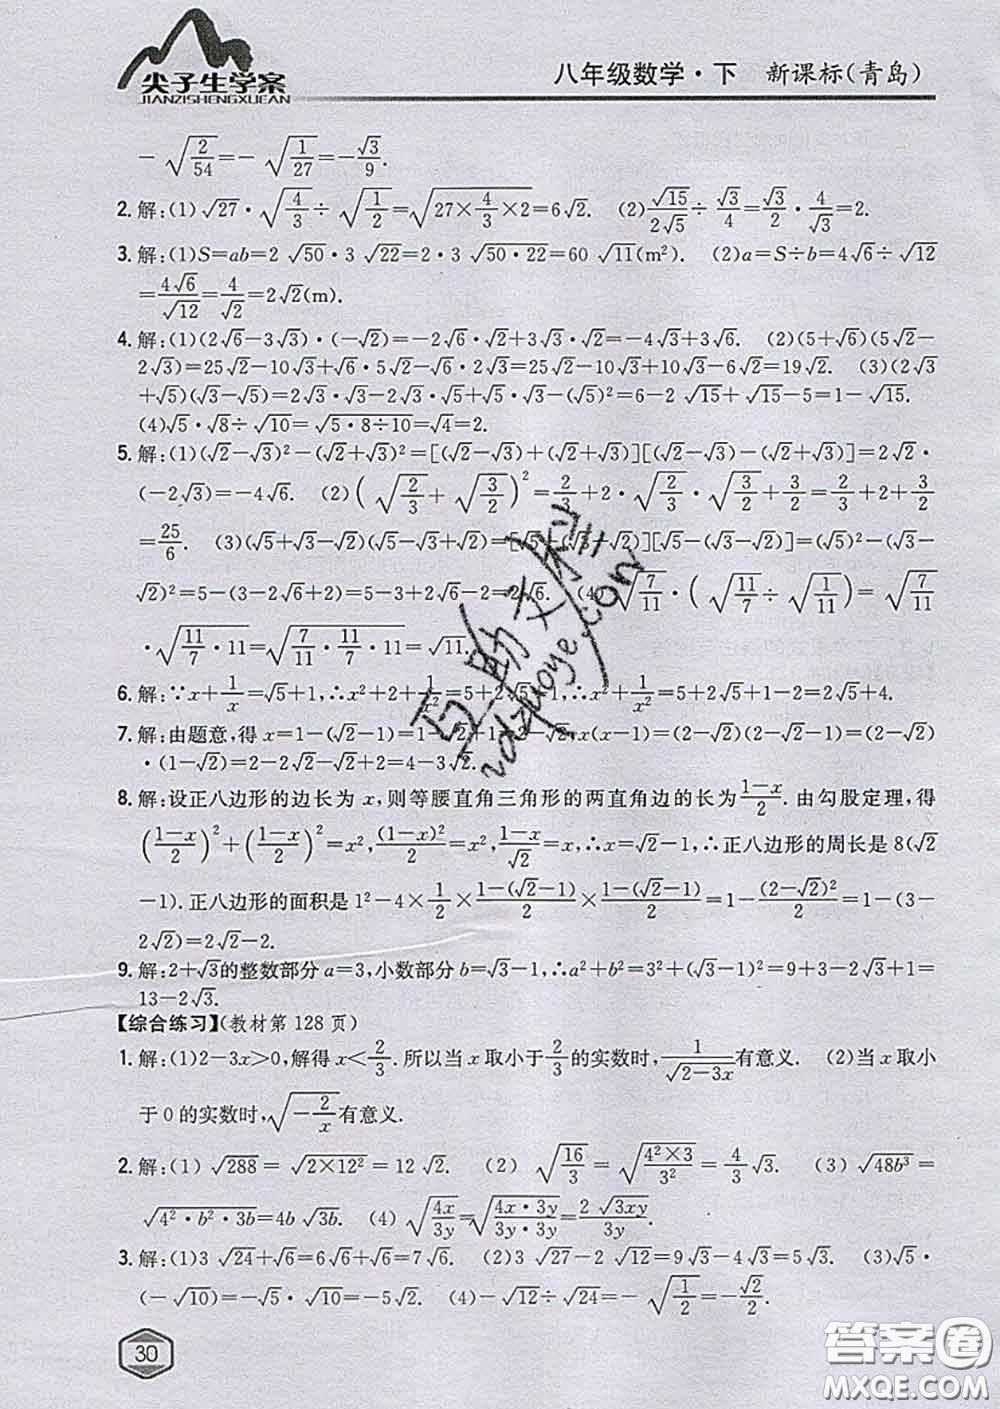 尖子生学案
JIANZISHENGXUEAN
八年级数学·下 新课标(青岛)
-√(2/54)=-√(1/27)=-√3/9.
2. 解:(1)√27·√(4/3)÷√(1/2)=√(27×4/3×2)=6√2. (2)√15/(2√5)÷√3/4=√3/2·4/√3=2.
3. 解:(1)S=ab=2√50·3√22=2·3√(50·22)=60√11(m²). (2)a=S÷b=4√6÷√12
=4√6/√12=4/√2=2√2(m).
4. 解:(1)(2√6-3√3)·(-√2)=-2√6·√2+3√3·√2=-4√3+3√6. (2)(5+√6)(5√2-
2√3)=25√2-10√3+√6·5√2-√6·2√3=25√2-10√3+10√3-6√2=19√2. (3)(2√3
+√5)(√3-√5)=2√3·√3-2√3·√5+√5·√3-(√5)²=6-2√15+√15-5=1-√15.
(4)√5·√8÷√10=√(5·8÷10)=√4=2.
5. 解:(1)(√2-√3)²-(√2+√3)²=[(√2-√3)+(√2+√3)][(√2-√3)-(√2+√3)]=2√2·
(-2√3)=-4√6. (2)(√(2/3)+√(3/2))²=2/3+2·√(2/3)·√(3/2)+3/2=2/3+2+3/2
=25/6. (3)(√5+√3-√2)(√5-√3+√2)=[√5+(√3-√2)][√5-(√3-√2)]=(√5)²-(√3-
√2)²=5-(3-2√6+2)=5-3+2√6-2=2√6. (4)√(7/11)·(√(11/7)÷√(1/11))=√(7/11)
·√(11/7·11)=√(7/11·11/7·11)=√11.
6. 解:∵x+1/x=√5+1,∴x²+2+1/x²=5+2√5+1,∴x²+1/x²=5+2√5+1-2=2√5+4.
7. 解:由题意,得x=1-(√2-1)=1-√2+1=2-√2,x(x-1)=(2-√2)(2-√2-1)=(2-√2)
·(1-√2)=2-2√2-√2+2=4-3√2.
8. 解:设正八边形的边长为x,则等腰直角三角形的两直角边的长为(1-x)/2.由勾股定理,得
((1-x)/2)²+((1-x)/2)²=x²,(1-x)²/2=x²,(1-x)/√2=x,∴x=√2-1,∴正八边形的周长是8(√2
-1).正八边形的面积是1²-4×1/2×(1-(√2-1))/2×(1-(√2-1))/2=1-(2-√2)²/2=1-(3-
2√2)=2√2-2.
9. 解:2+√3的整数部分a=3,小数部分b=√3-1,∴a²+b²=3²+(√3-1)²=9+3-2√3+1=
13-2√3.
【综合练习】(教材第128页)
1. 解:(1)2-3x>0,解得x<2/3.所以当x取小于2/3的实数时,1/√(2-3x)有意义. (2)当x取小
于0的实数时,√(-2/x)有意义.
2. 解:(1)√288=√(2×12²)=12√2. (2)√(16/3)=√((4²×3)/3²)=4/3√3. (3)√(48b³)=
√(4²·b²·3b)=4b√(3b). (4)√(4x/3y)=√((4x·3y)/(3y·3y))=2√(3xy)/3y.
3. 解:(1)3√24+√6=6√6+√6=7√6. (2)3√27-2√12=9√3-4√3=5√3. (3)√5·
(-√10)=-√5·√10=-5√2. (4)-√12÷√24=-√(1/2)=-√2/2.
30
答案圈
MXQE.COM